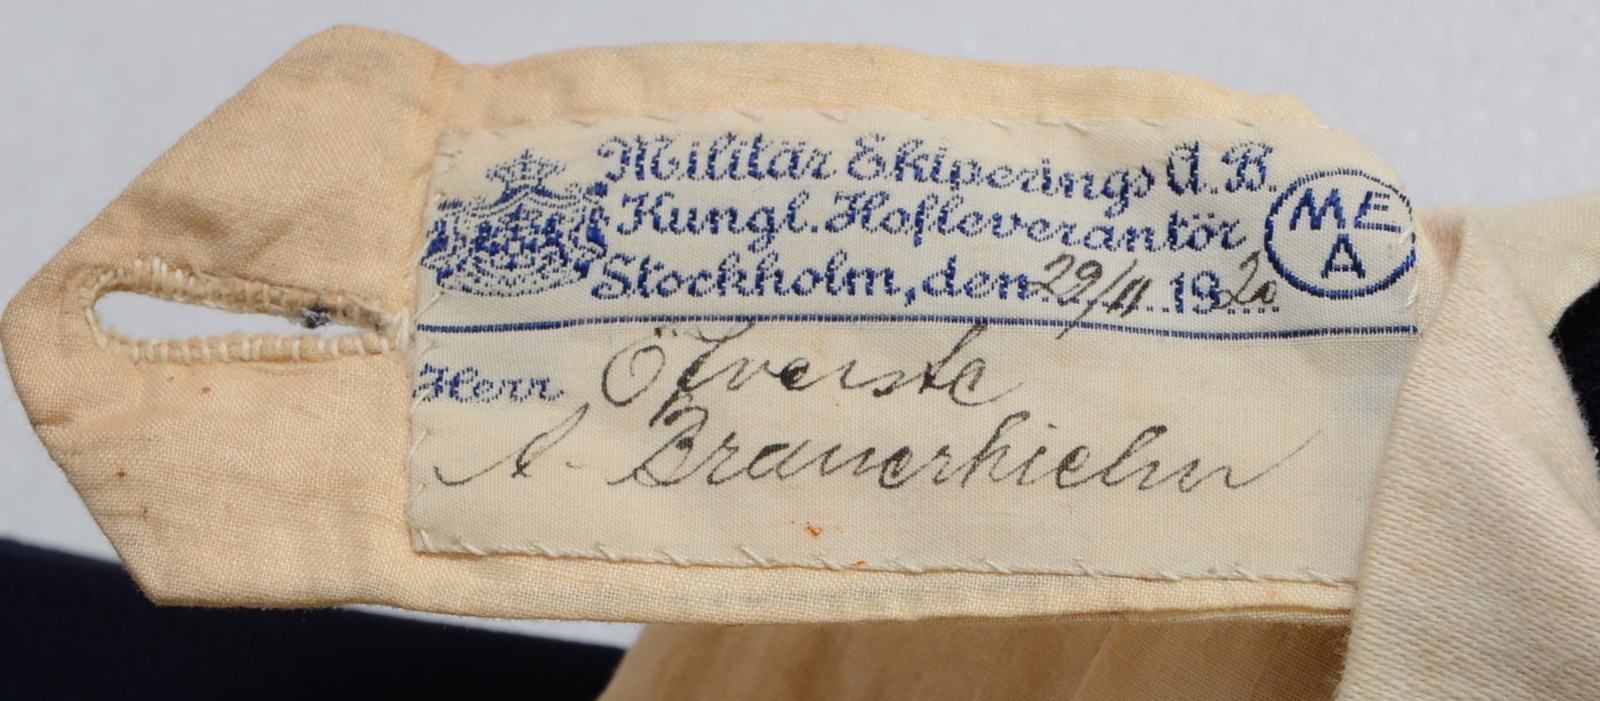 Militär Ekiperings A.B.
Kungl. Hofleverantör
Stockholm, den 29/11 1920
MEA
Herr Öfverste
A. Braunerhielm